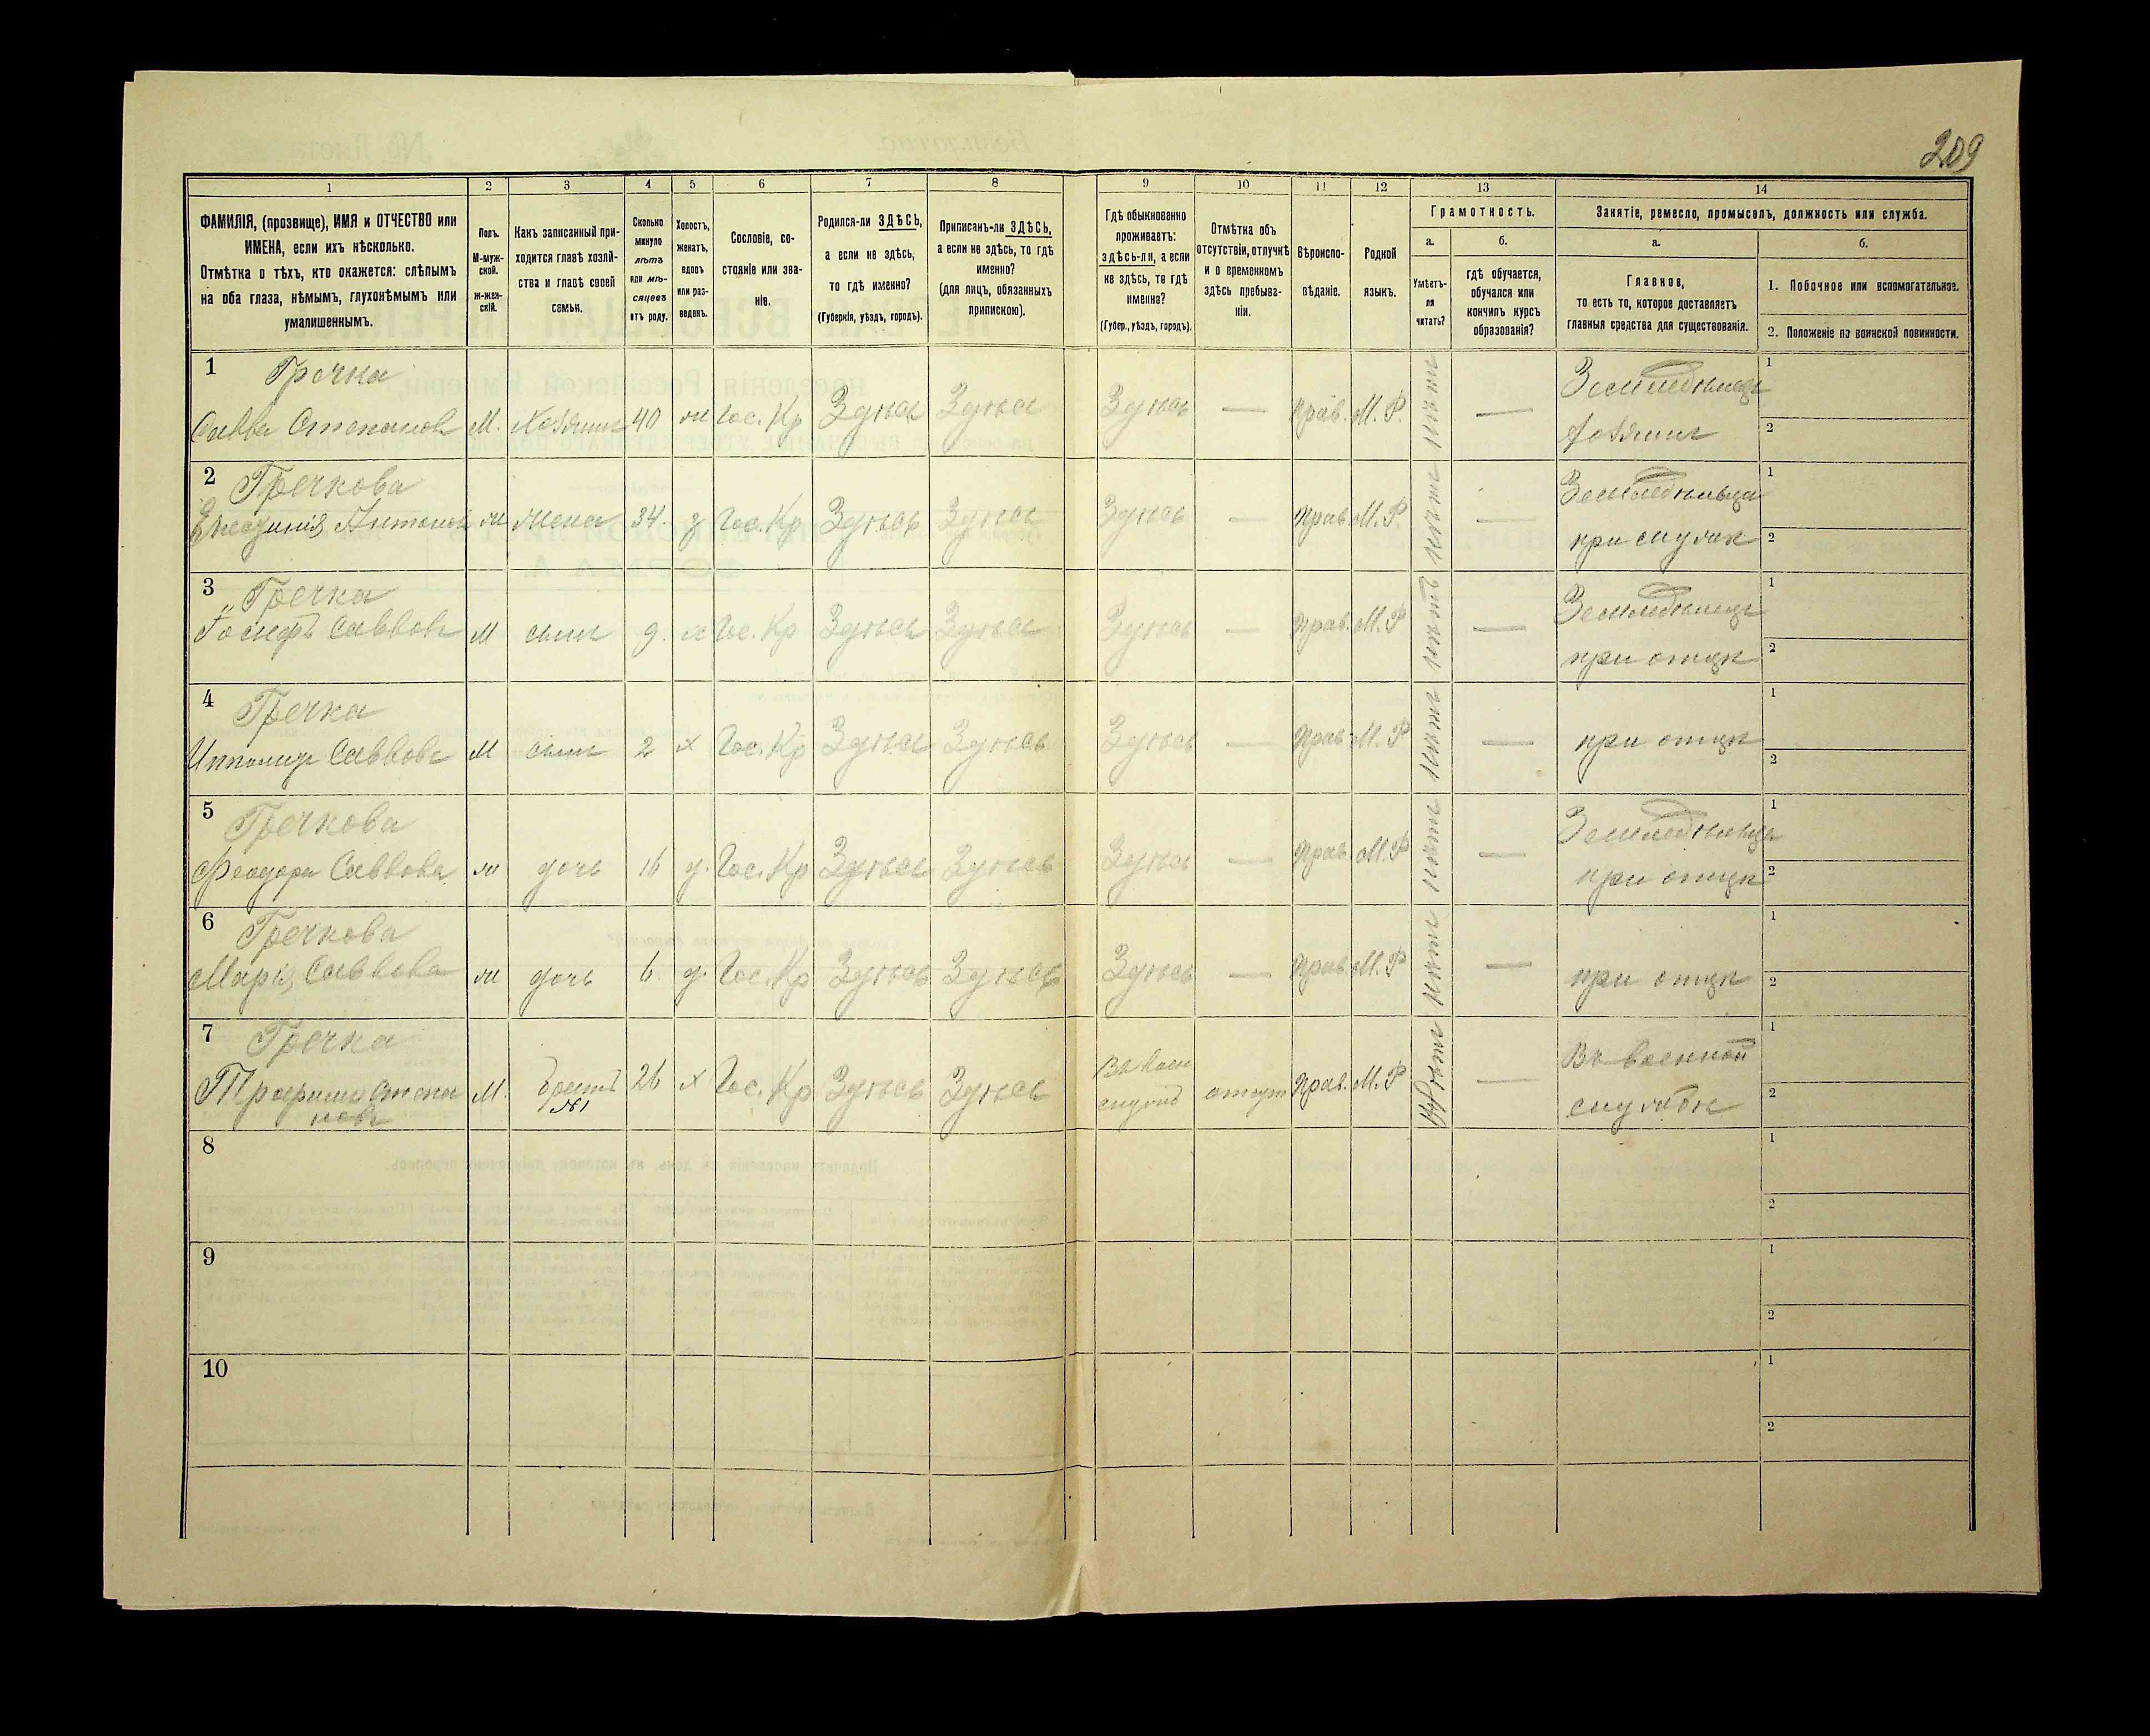 209
1 2 3 4 5 6 7 8 9 10 11 12 13 14
ФАМИЛІЯ, (прозвище), ИМЯ и ОТЧЕСТВО или
ИМЕНА, если ихъ нѣсколько.
Отмѣтка о тѣхъ, кто окажется: слѣпымъ
на оба глаза, нѣмымъ, глухонѣмымъ или
умалишеннымъ.
Полъ.
М-муж-
ской.
ж-жен-
скій.
Какъ записанный при-
ходится главѣ хозяй-
ства и главѣ своей
семьи.
Сколько
минуло
лѣтъ
или мѣ-
сяцевъ
отъ роду.
Холостъ,
женатъ,
вдовъ
или раз-
веденъ.
Сословіе, со-
стояніе или зва-
ніе.
Родился-ли ЗДѢСЬ,
а если не здѣсь,
то гдѣ именно?
(Губернія, уѣздъ, городъ).
Приписанъ-ли ЗДѢСЬ,
а если не здѣсь, то гдѣ
именно?
(для лицъ, обязанныхъ
припискою).
Гдѣ обыкновенно
проживаетъ:
здѣсь-ли, а если
не здѣсь, то гдѣ
именно?
(Губер., уѣздъ, городъ).
Отмѣтка объ
отсутствіи, отлучкѣ
и о временномъ
здѣсь пребыва-
ніи.
Вѣроиспо-
вѣданіе.
Родной
языкъ.
Грамотность.
а.
Умѣетъ-
ли
читать?
б.
гдѣ обучается,
обучался или
кончилъ курсъ
образованія?
Занятіе, ремесло, промыселъ, должность или служба.
а.
Главное,
то есть то, которое доставляетъ
главныя средства для существованія.
б.
1. Побочное или вспомогательное.
2. Положеніе по воинской повинности.
1 Гречка Земледѣлецъ 1
Савва Степановъ М. Хозяинъ 40 ж Гос. Кр Здѣсь Здѣсь Здѣсь — Прав. М. Р. нѣтъ — хозяинъ 2
2 Гречкова Земледѣльца 1
Антонов ж жена 34 з Гос. Кр Здѣсь Здѣсь Здѣсь — Прав М. Р. нѣтъ — при 2
3 Гречка Земледѣлецъ 1
Іосифъ Саввовъ М сынъ 9. х Гос. Кр Здѣсь Здѣсь Здѣсь — Прав. М. Р нѣтъ — при отцѣ 2
4 Гречка 1
Ипполитъ Саввовъ М сынъ 2 х Гос. Кр Здѣсь Здѣсь Здѣсь — Прав М. Р нѣтъ — при отцѣ 2
5 Гречкова Земледѣльца 1
Феодора Саввова ж дочь 16 д. Гос. Кр Здѣсь Здѣсь Здѣсь — Прав. М. Р нѣтъ — при отцѣ 2
6 Гречкова 1
Марія Саввова ж дочь 6 д. Гос. Кр Здѣсь Здѣсь Здѣсь — Прав. М. Р нѣтъ — при отцѣ 2
7 Гречка Въ воен Въ военной 1
Трофимъ Степа М. братъ 26 х Гос. Кр Здѣсь Здѣсь служб отсут Прав. М. Р — службѣ 2
новъ №1
8 1
2
9 1
2
10 1
2